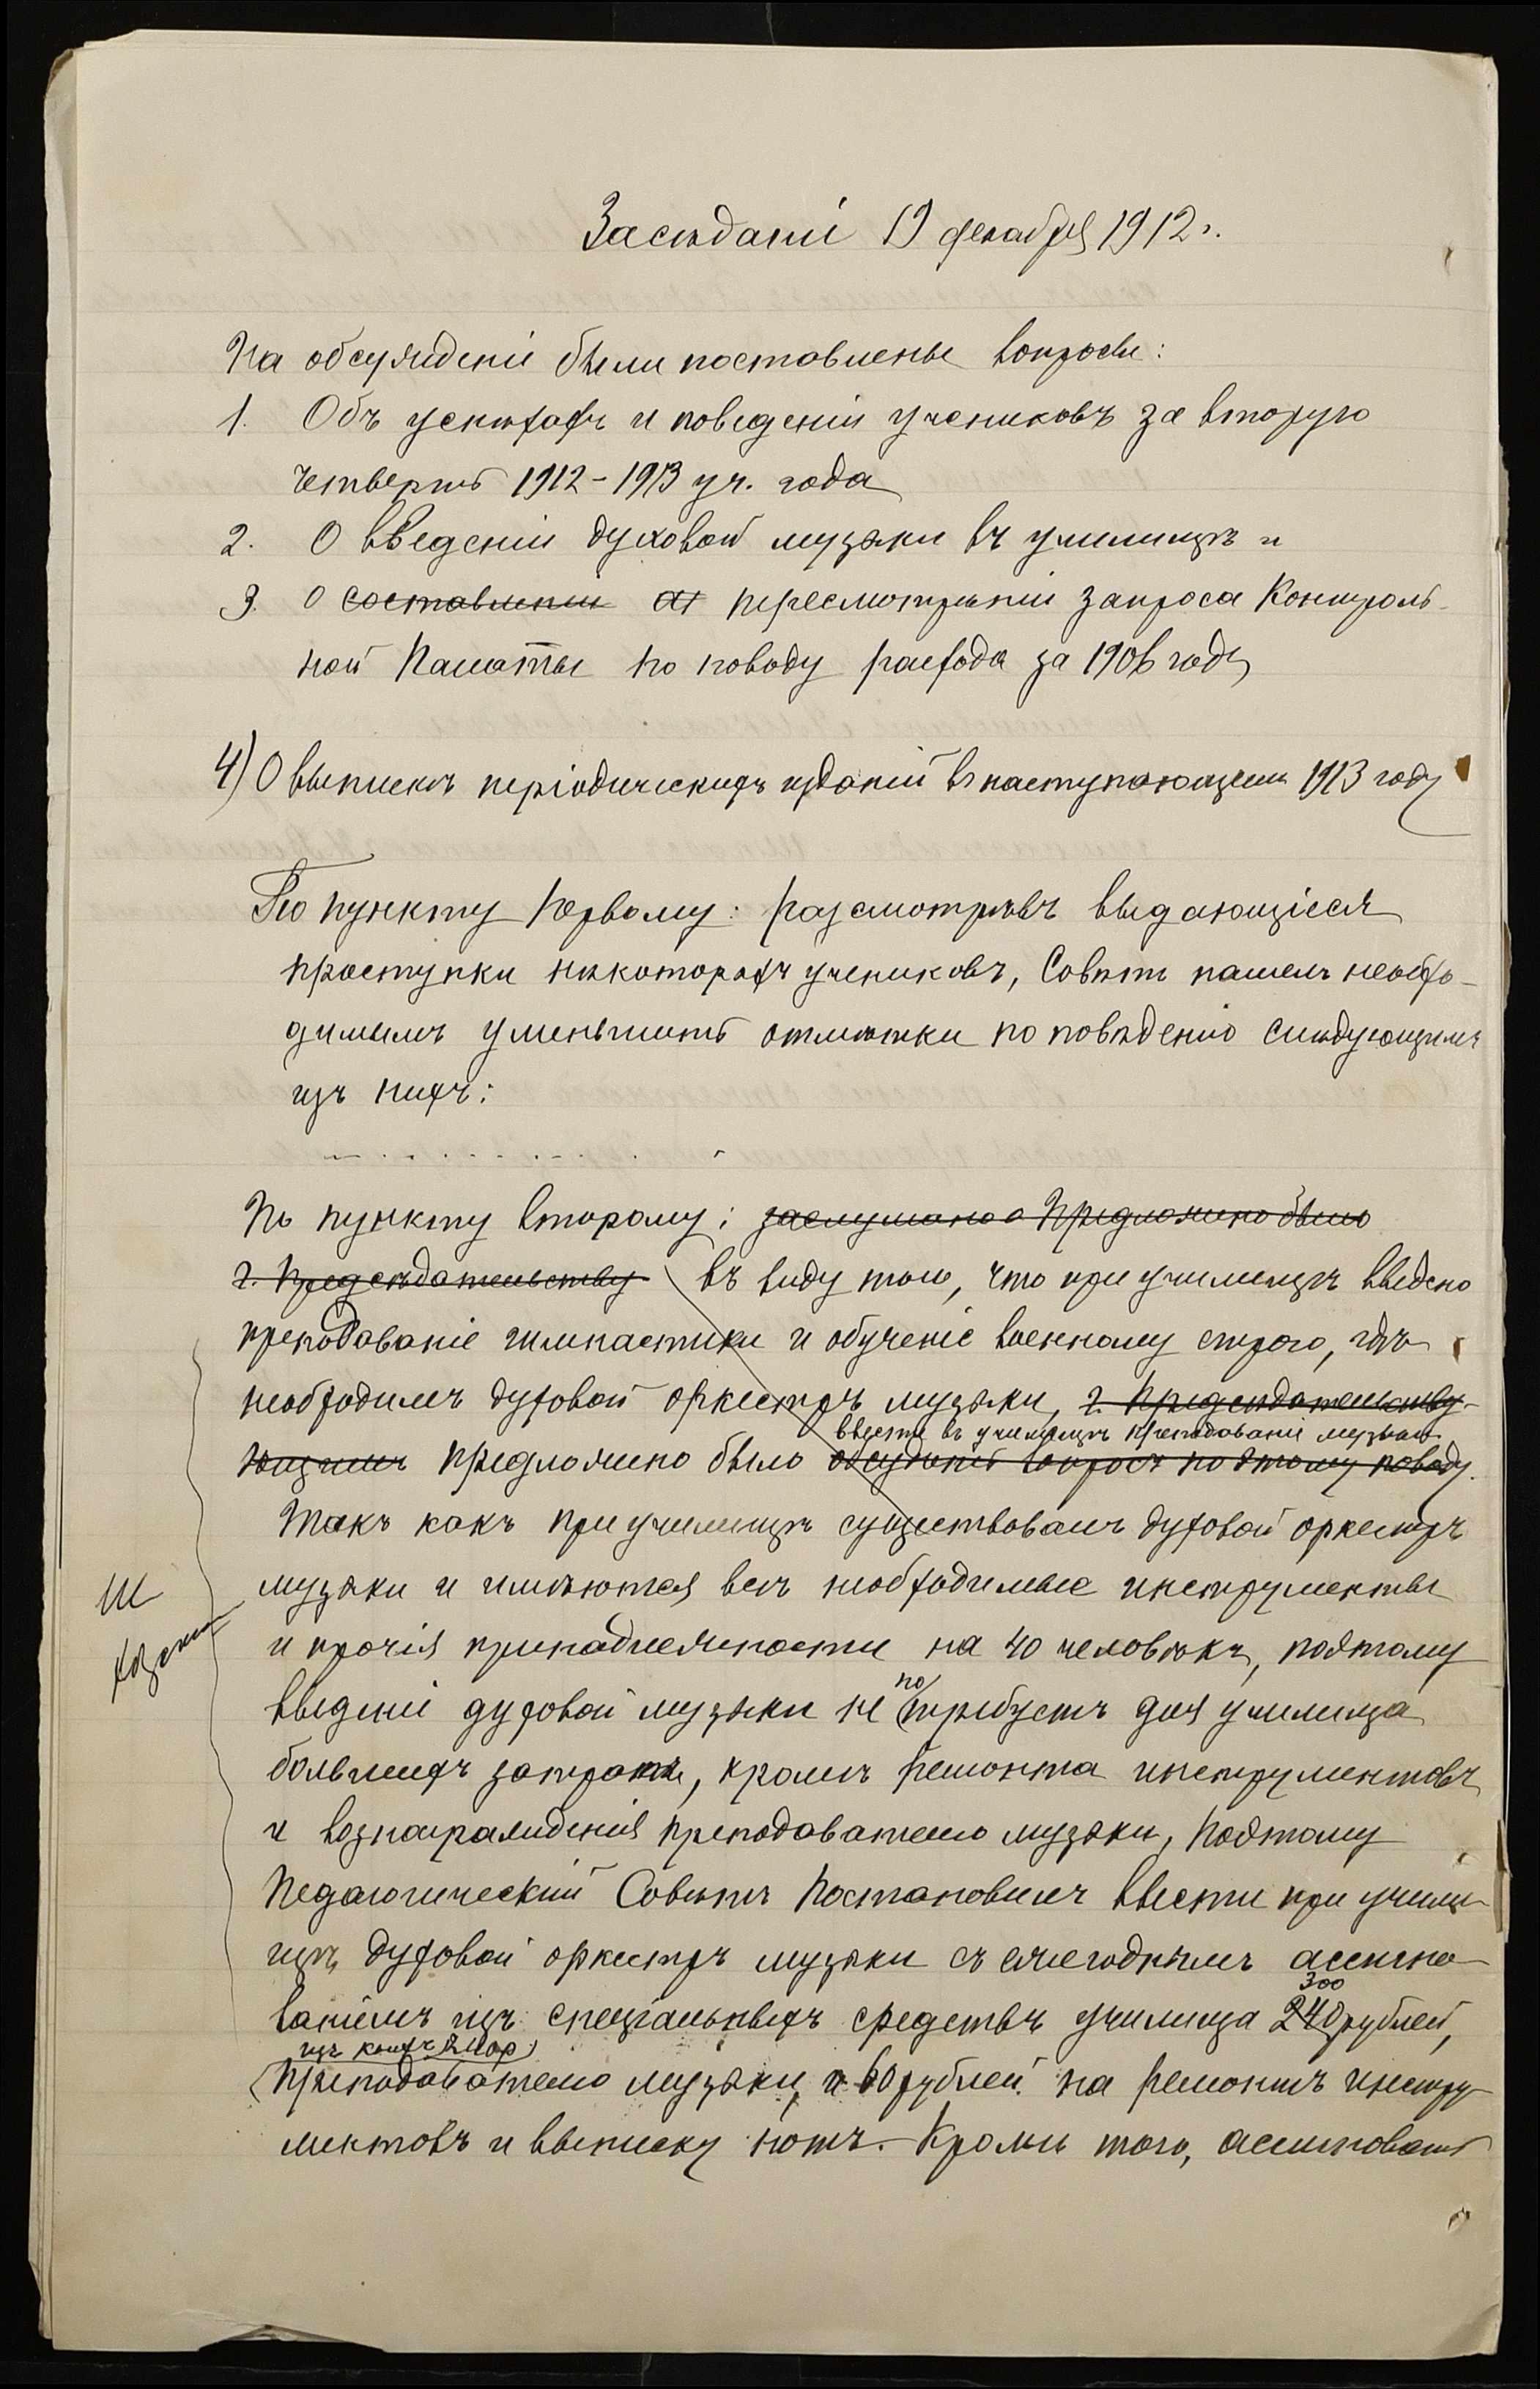 Засѣданіе 19 декабря 1912 г.
На обсужденіе были поставлены вопросы:
1. Объ успѣхахъ и поведеніи учениковъ за вторую
четверть 1912-1913 уч. года
2. О введеніи духовой музыки въ училищѣ и
3. О составленіи пересмотрѣніи запроса Контроль-
ной Палаты по поводу расхода за 1906 годъ
4) О выпискѣ періодическихъ изданій въ наступающемъ 1913 году
По пункту первому: разсмотрѣвъ выдающіеся
проступки нѣкоторыхъ учениковъ, Совѣтъ нашелъ необхо-
димымъ уменьшить отмѣтки по поведенію слѣдующимъ
изъ нихъ:
По пункту второму: заслушано о Предложено было
г. Предсѣдательству въ виду того, что при училищѣ введено
преподаваніе гимнастики и обученіе военному строю, гдѣ
необходимъ духовой оркестръ музыки, г. Предсѣдательству-
ввести въ училищѣ преподаваніе музыки
ющимъ предложено было обсудить вопросъ по этому поводу.
Такъ какъ при училищѣ существовалъ духовой оркестръ
музыки и имѣются всѣ необходимые инструменты
и прочія принадлежности на 40 человѣкъ, поэтому
по
введеніе духовой музыки не требуетъ для училища
большихъ затратъ, кромѣ ремонта инструментовъ
и вознагражденія преподавателю музыки, поэтому
Педагогическій Совѣтъ постановилъ ввести при учили-
щѣ духовой оркестръ музыки съ ежегоднымъ ассигно-
300
ваніемъ изъ спеціальныхъ средствъ училища 240 рублей,
изъ коихъ 240 р
преподавателю музыки и 60 рублей на ремонтъ инстру-
ментовъ и выписку нотъ. Кромѣ того, ассигновать